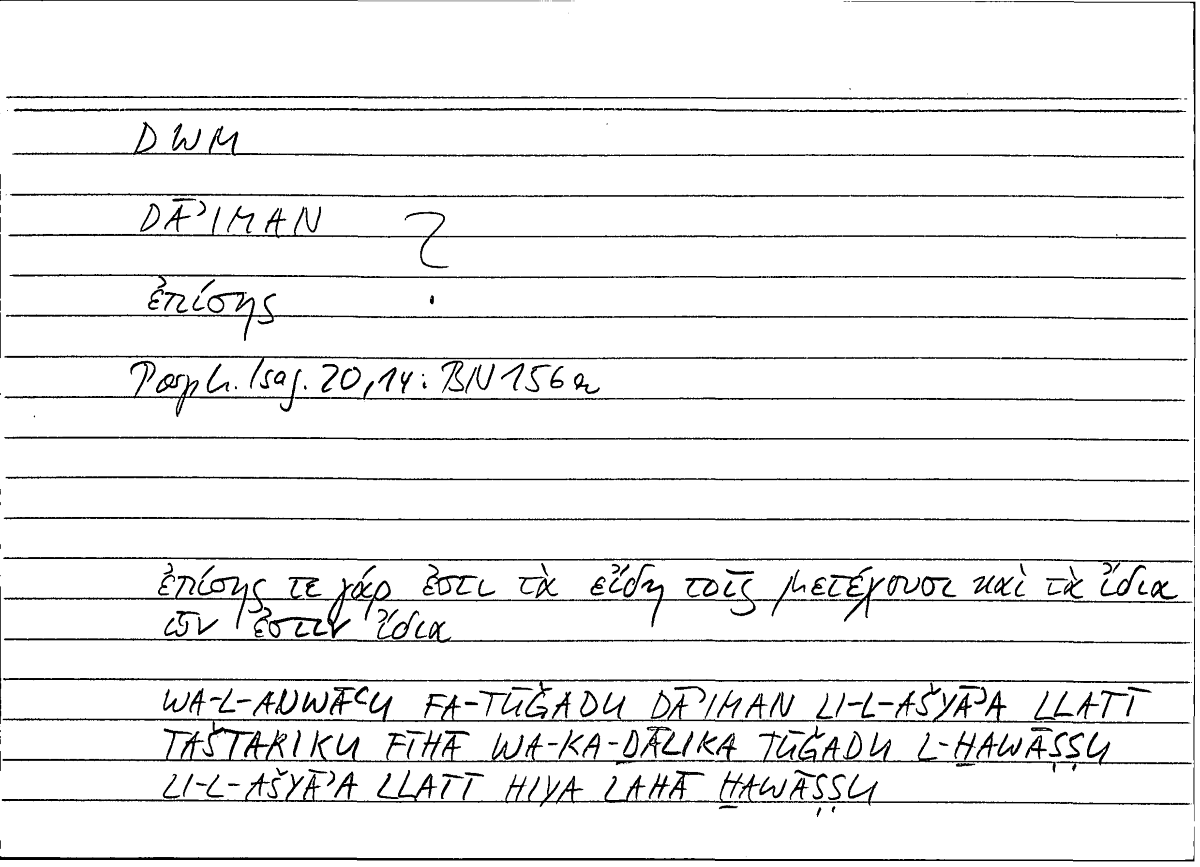 DWM
DĀʾIMAN ?
ἐπίσης
Porph. Isag. 20,14: BN 156a
ἐπίσης τε γάρ ἐστι τὰ εἴδη τοῖς μετέχουσι καὶ τὰ ἴδια
ὧν ἐστιν ἴδια
WA-L-ANWĀʿU FA-TŪǦADU DĀʾIMAN LI-L-AŠYĀʾA LLATĪ
TAŠTARIKU FĪHĀ WA-KA-ḎĀLIKA TŪǦADU L-ḪAWĀṢṢU
LI-L-AŠYĀʾA LLATĪ HIYA LAHĀ ḪAWĀṢṢU